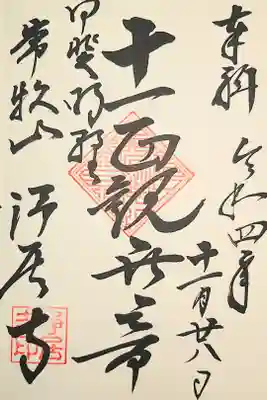 奉拝 令和四年
十一月廿八日
十一面観世音
甲斐
常牧山 浄居寺